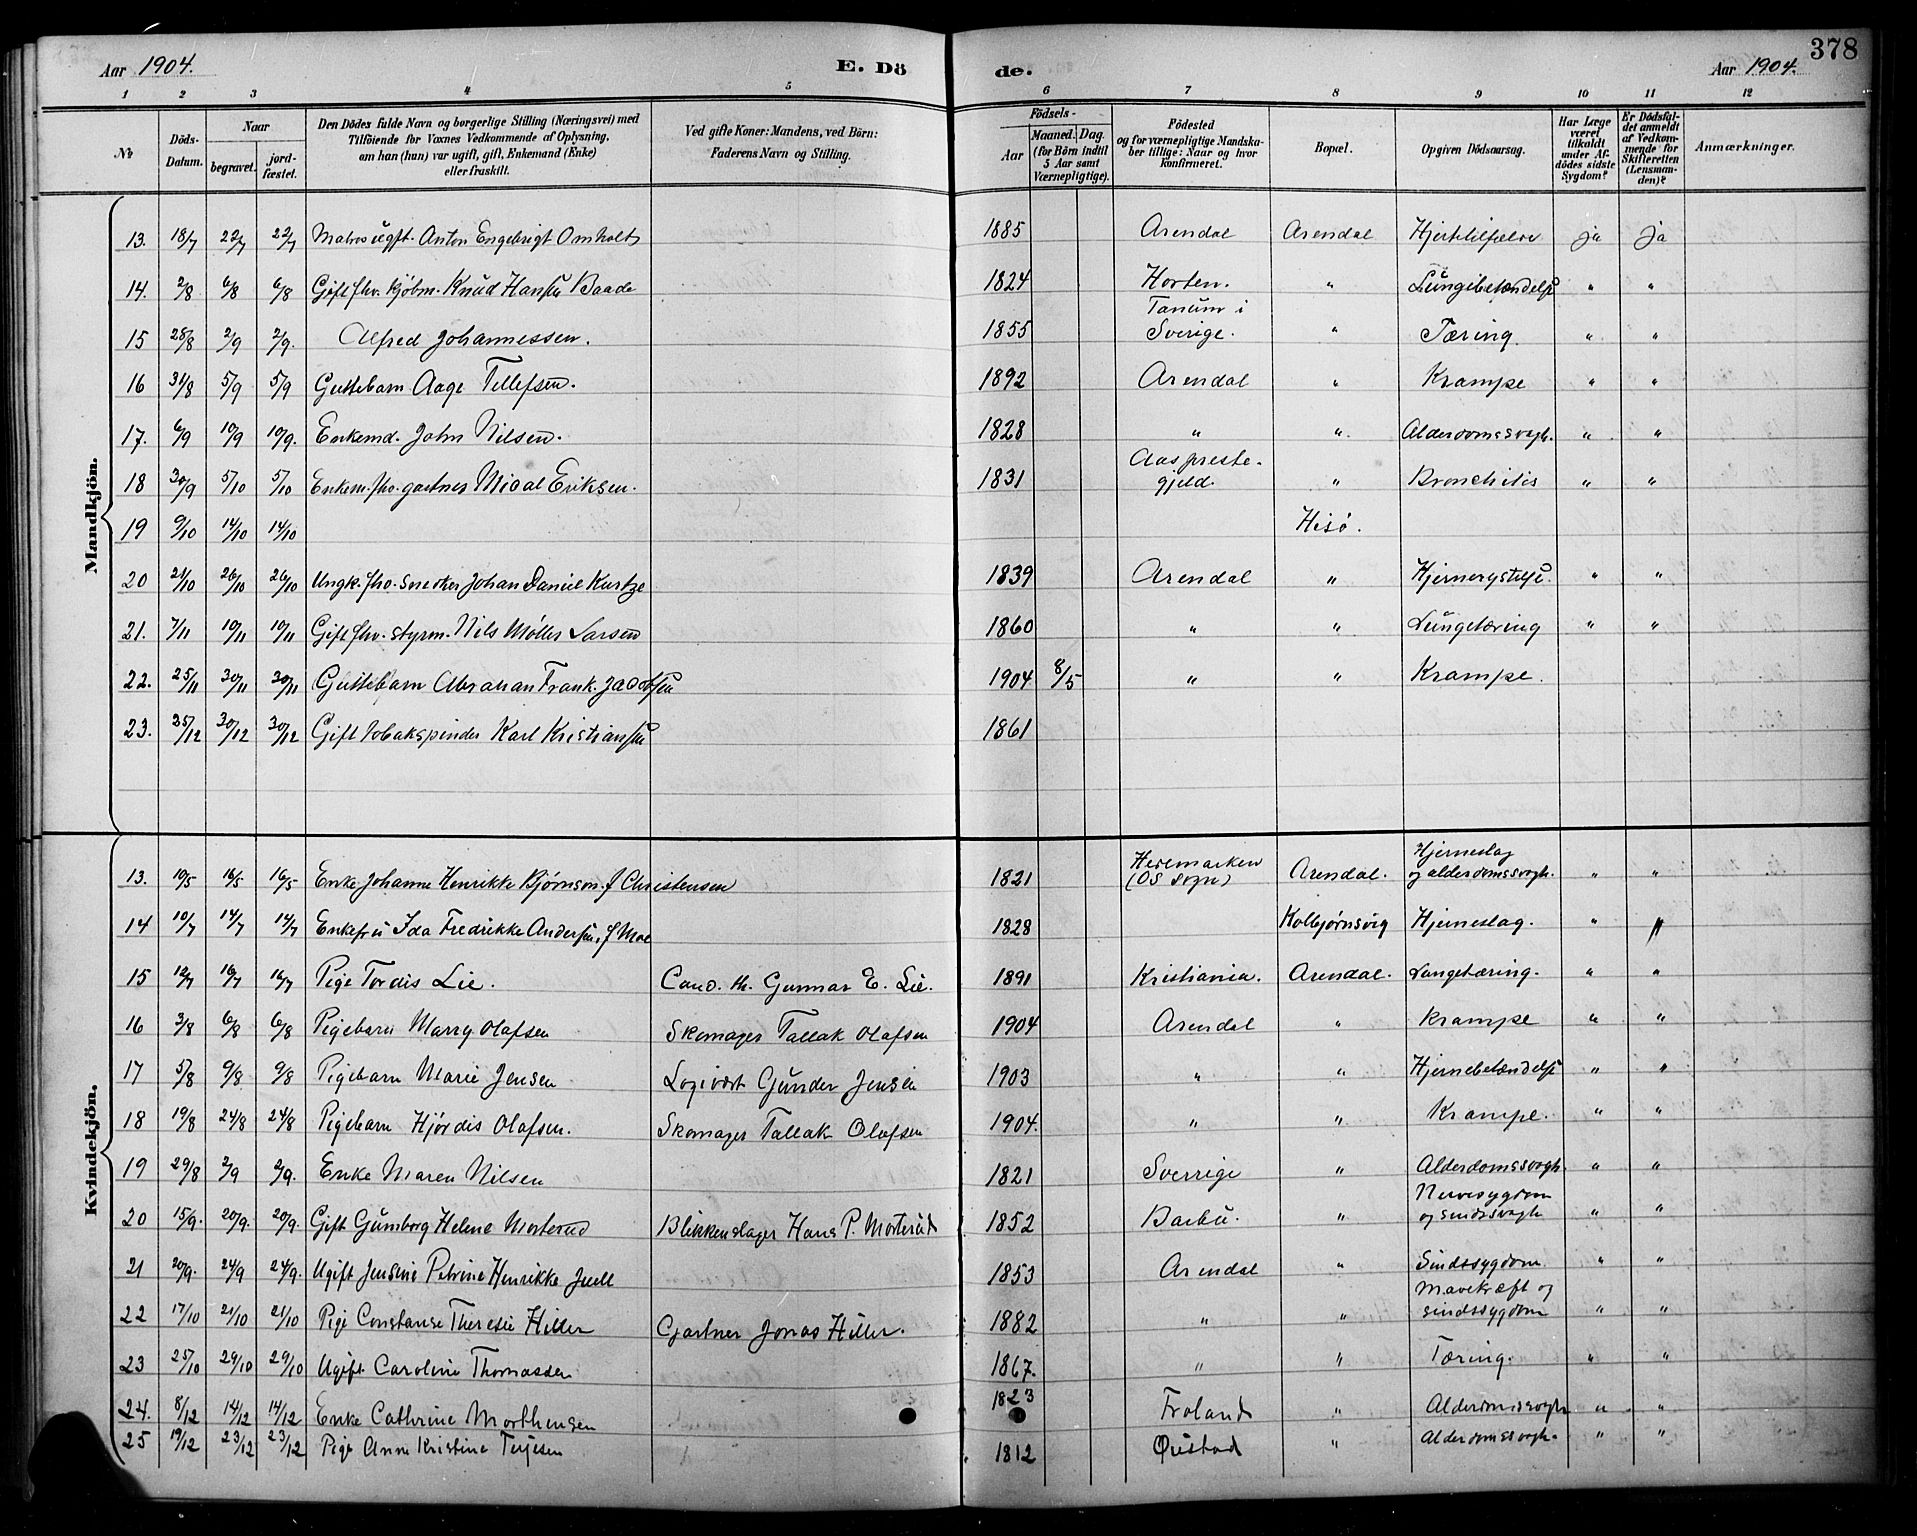 Aar 1904. E. Dö de. Aar 1904. 378
1 2 3 4 5 6 7 8 9 10 11 12
№ Döds-Datum. Naar begravet. jord-fæstet. Den Dödes fulde Navn og borgerlige Stilling (Næringsvei) med Tilföiende for Voxnes Vedkommende af Oplysning, om han (hun) var ugift, gift, Enkemand (Enke) eller fraskilt. Ved gifte Koner: Mandens, ved Börn: Faderens Navn og Stilling. Födsels- Aar Maaned. Dag. (for Börn indtil 5 Aar samt Værnepligtige). Födested og for værnepligtige Mandskaber tillige: Naar og hvor konfirmeret. Bopæl. Opgiven Dödsaarsag. Har Læge været tilkaldt under Afdödes sidste Sygdom? Er Dödsfaldet anmeldt af Vedkommende for Skifteretten (Lensmanden)? Anmærkninger.
Mandkjön.
13. 18/7 22/7 22/7 Matros ugft. Anton Engebrigt Omholt 1885 Arendal Arendal Hjertetilfælde ja ja
14. 2/8 6/8 6/8 Gift fhv. kjöbm. Knud Hansen Baade 1824 Horten. " Lungebetændelse " "
15 28/8 2/9 2/9. Alfred Johannessen. 1855 Tanum i Sverige. " Tæring. " "
16 31/8 5/9 5/9 Guttebarn Aage Tellefsen. 1892 Arendal " Krampe " "
17. 6/9 10/9 10/9. Enkemd. John Nilsen. 1828 " " Alderdomssvagh. " "
18 30/9 5/10 5/10 Enkem. fhv. gartner Mical Eriksen. 1831 Aas prestegjeld. " Bronchitis " "
19 9/10 14/10 14/10 Hisö.
20 21/10 26/10 26/10 Ungk. fhv. snedker Johan Daniel Kurtze 1839 Arendal " Hjernerystelse. " "
21. 7/11 10/11 10/11 Gift fhv. styrm. Nils Møller Larsen 1860 " " Lungetæring " "
22. 25/11 30/11 30/11 Guttebarn Abraham Frank Jacobsen 1904 8/5 " " Krampe.
23. 25/12 30/12 30/12 Gift tobakspinder Karl Kristiansen 1861
Kvindekjön.
13. 10/5 16/5 16/5 Enke Johanne Henrikke Bjørnson f Christensen 1821 Hesemarken (OS sogn) Arendal. Hjerneslag og alderdomssvagh. " "
14 10/7 14/7 14/7 Enkefru Ida Fredrikke Andersen, f Moe 1828 Kolbjørnsvig Hjerneslag. " "
15 12/7 16/7 16/7 Pige Tordis Lie. Cand. th. Gunnar E. Lie. 1891 Kristiania. Arendal. Lungetæring. " "
16 3/8 6/8 6/8 Pigebarn Marry Olafsen Skomager Tallak Olafsen 1904 Arendal " Krampe " "
17 5/8 9/8 9/8 Pigebarn Marie Jensen Logivært Gunder Jensen 1903 " " Hjernebetændelse " "
18 19/8 24/8 24/8 Pigebarn Hjördis Olafsen. Skomager Tallak Olafsen 1904. " " Krampe. " "
19 29/8 2/9 2/9. Enke Maren Nilsen 1821 Sverrige " Alderdomssvagh. " "
20 15/9. 20/9. 20/9. Gift Gunborg Helene Morterud Blikkenslager Hans P. Morterud 1852 Barbu. " Nervesygdom og sindssvagh " "
21 20/9. 24/9 24/9. Ugift Jensine Petrine Henrikke Juell 1853 Arendal " Sindssygdom. " "
22 17/10 21/10 21/10 Pige Constanse Theresie Hiller Gartner Jonas Hiller. 1882 " " Mavekræft og sindssygdom " "
23 25/10 29/10 29/10 Ugift Caroline Thomassen 1867. " " Tæring. " "
24. 8/12 14/12 14/12 Enke Cathrine Morthensen 1823 Froland " Alderdomssvagh " "
25 19/12 23/12 23/12 Pige Anne Kristine Terjesen 1812 Øiestad " Alderdomssvagh. " "